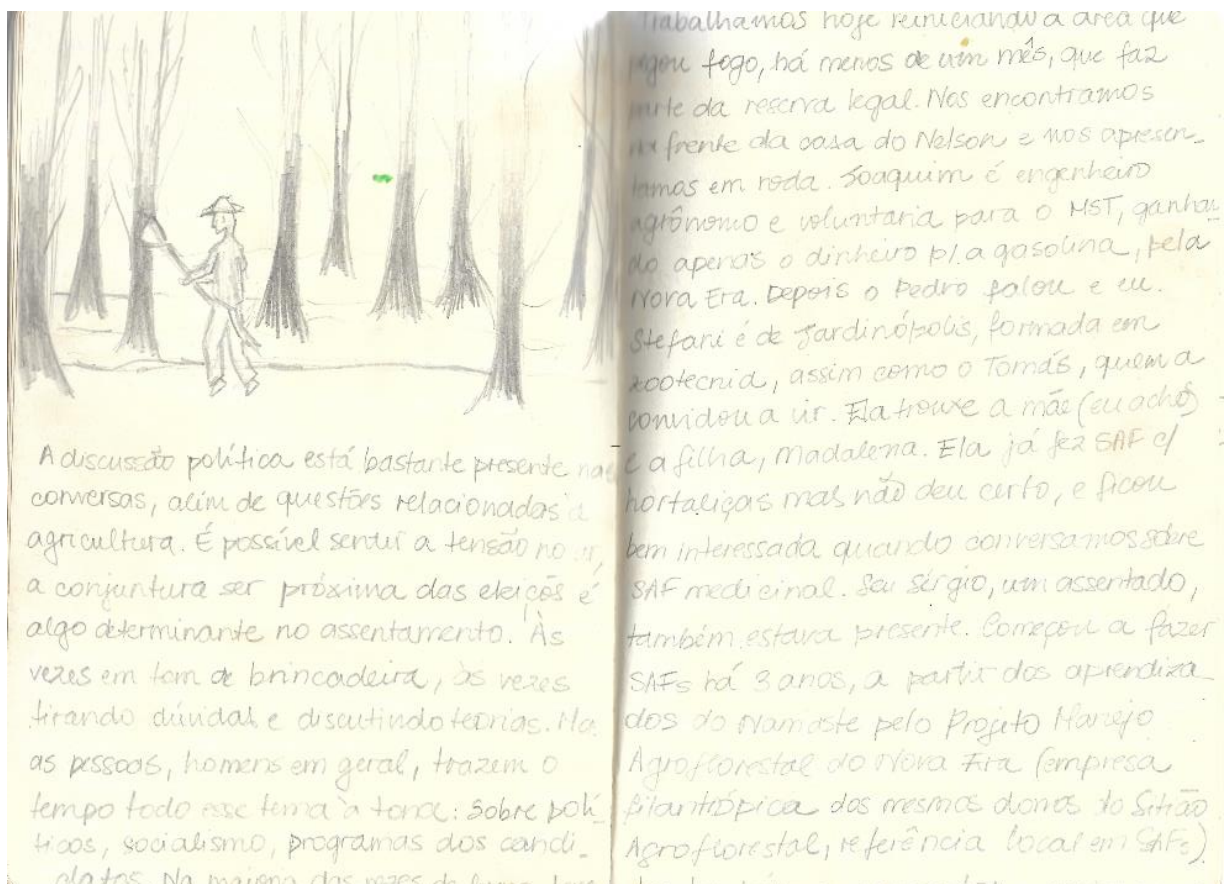 A discussão política está bastante presente nas
conversas, além de questões relacionadas à
agricultura. É possível sentir a tensão no ar,
a conjuntura ser próxima das eleições é
algo determinante no assentamento. Às
vezes em tom de brincadeira, às vezes
tirando dúvidas e discutindo teorias. Mas
as pessoas, homens em geral, trazem o
tempo todo esse tema à tona: sobre polí-
ticos, socialismo, programas dos candi-
datos. Na maioria das vezes de forma
Trabalhamos hoje reiniciando a área que
pegou fogo, há menos de um mês, que faz
parte da reserva legal. Nos encontramos
na frente da casa do Nelson e nos apresen-
tamos em roda. Joaquim é engenheiro
agrônomo e voluntaria para o MST, ganhan-
do apenas o dinheiro p/ a gasolina, pela
Nova Era. Depois o Pedro falou e eu.
Stefani é de Jardinópolis, formada em
zootecnia, assim como o Tomás, quem a
convidou a vir. Ela trouxe a mãe (eu acho)
e a filha, Madalena. Ela já fez SAF c/
hortaliças mas não deu certo, e ficou
bem interessada quando conversamos sobre
SAF medicinal. Seu Sérgio, um assentado,
também estava presente. Começou a fazer
SAFs há 3 anos, a partir dos aprendiza
dos do Namaste pelo Projeto Manejo
Agroflorestal do Nova Era (empresa
filantrópica dos mesmos donos do Sitião
Agroflorestal, referência local em SAFs)